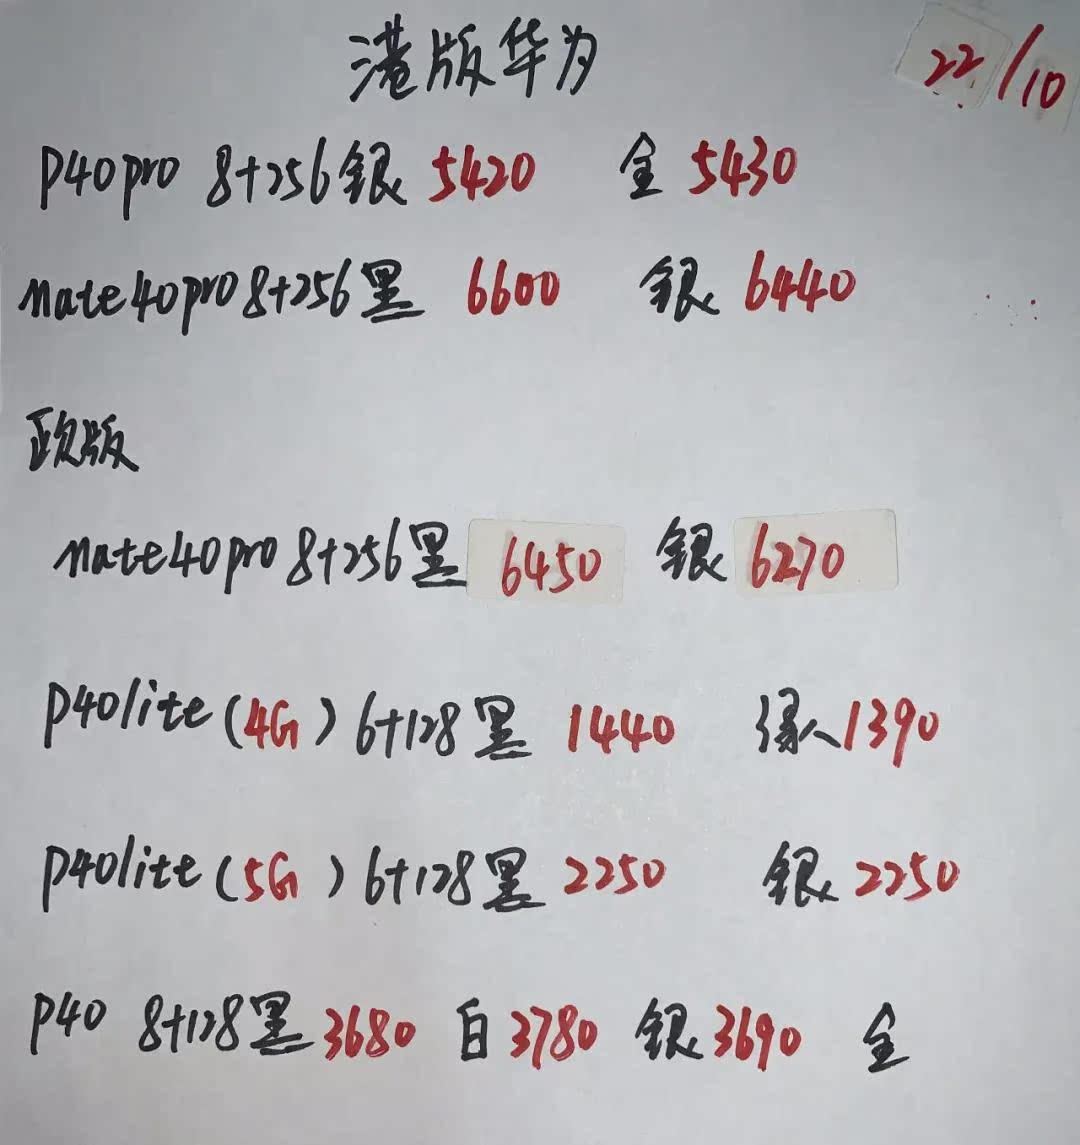 港版华为 22/10
P40pro 8+256银 5420 金 5430
mate40pro 8+256黑 6600 银 6440
欧版
mate40pro 8+256黑 6450 银 6270
P40lite (4G) 6+128黑 1440 绿 1390
P40lite (5G) 6+128黑 2250 银 2250
P40 8+128黑 3680 白 3780 银 3690 金